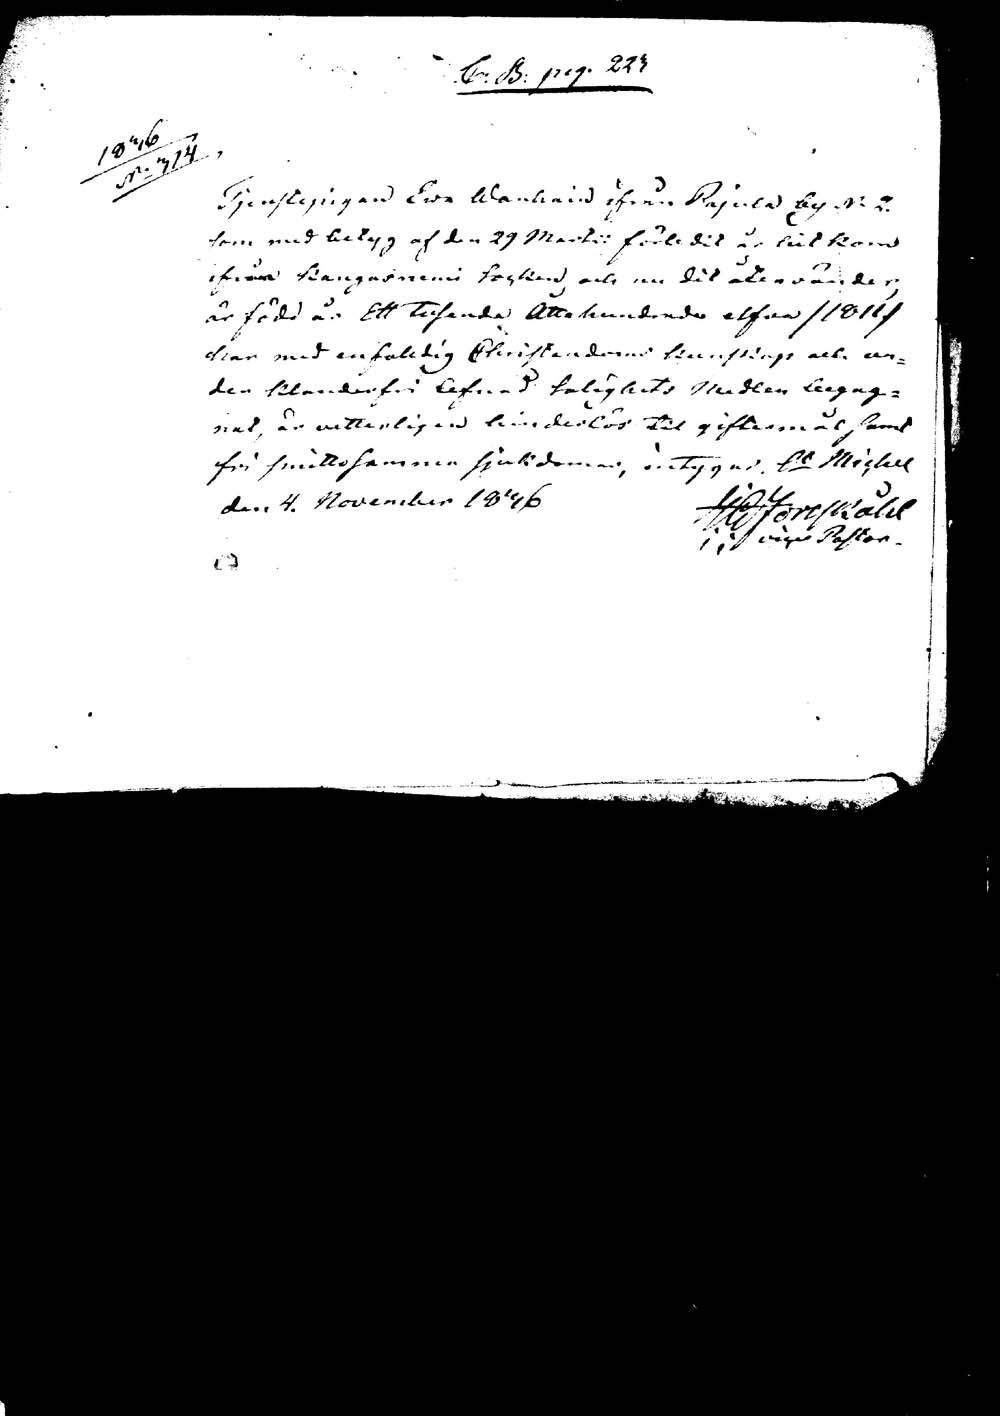 C. B. pag. 223
1846
N:o 714
Tjenstepigan Ewa Wanhain ifrån Pajula by N:o 2.
som med betyg af den 29 Martii förledit år hit kom
ifrån Kangasniemi Socken, och nu dit återvänder,
är född år Ett Tusende Åttahundrade elfva /1811/
har med enfaldig Christendoms kunskap och un=
der klanderfri lefnad Salighets Medlen begag=
nat, är vetterligen hinderlös til giftermål samt
fri smittosamma sjukdomar, intygar. St Michel
den 4. November 1846
Forsskåhl
vice Pastor.